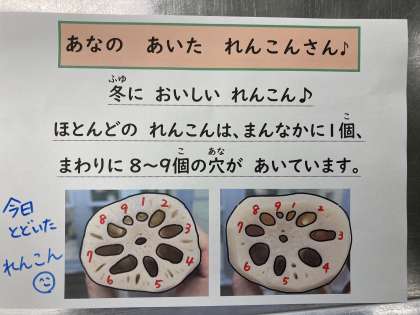 あなの あいた れんこんさん♪
ふゆ
冬に おいしい れんこん♪
こ
ほとんどの れんこんは、まんなかに1個、
こ あな
まわりに 8～9個の穴が あいています。
今日
とどいた
れんこん
9 1 2
8 3
7 4
6 5
9 1 2
8 3
7 4
6 5